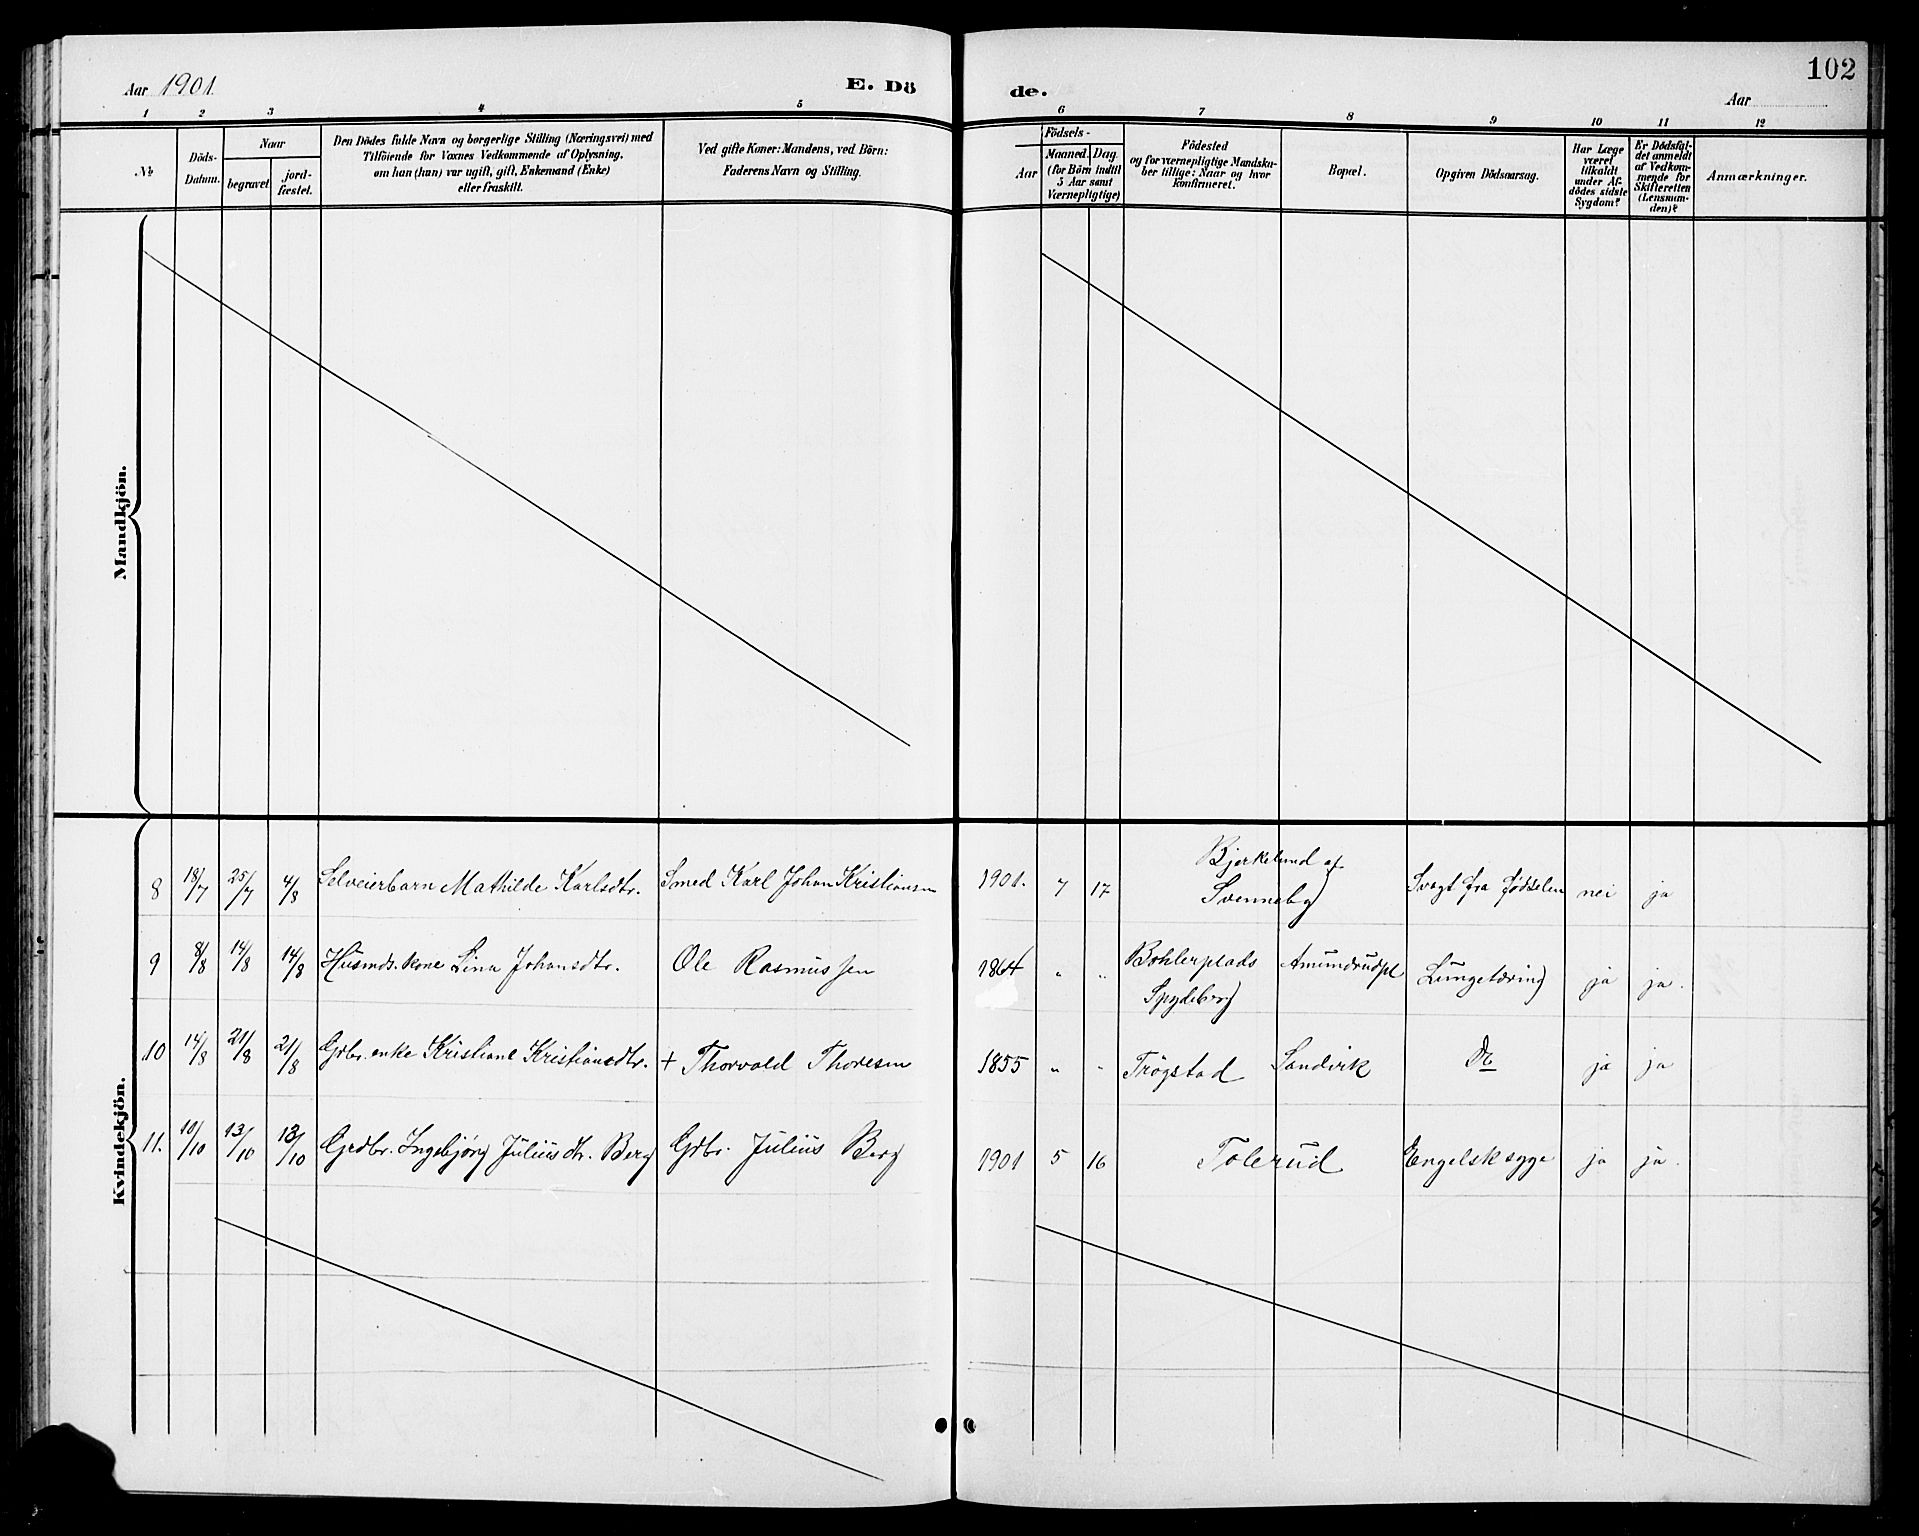 Aar 1901.
E. Dö
de.
102
Aar
1 2 3 4 5 6 7 8 9 10 11 12
№
Döds-
Datum.
Naar
begravet.
jord-
fæstet.
Den Dödes fulde Navn og borgerlige Stilling (Næringsvei) med
Tilföiende for Voxnes Vedkommende af Oplysning,
om han (hun) var ugift, gift, Enkemand (Enke)
eller fraskilt.
Ved gifte Koner: Mandens, ved Börn:
Faderens Navn og Stilling.
Födsels-
Aar
Maaned.
Dag
(for Börn indtil
5 Aar samt
Værnepligtige)
Födested
og for værnepligtige Mandska-
ber tillige: Naar og hvor
konfirmeret.
Bopæl.
Opgiven Dödsaarsag.
Har Læge
været
tilkaldt
under Af-
dödes sidste
Sygdom?
Er Dödsfal-
det anmeldt
af Vedkom-
mende for
Skifteretten
(Lensman-
den)?
Anmærkninger.
Mandkjön.
Kvindekjön.
8 18/7 25/7 4/8 Selveierbarn Mathilde Karlsdtr. Smed Karl Johan Kristiansen 1901. 7 17 Bjerkelund af
Svenneby Svagt fra fødselen nei ja
9 8/8 14/8 14/8 Husmds. kone Lina Johansdtr. Ole Rasmussen 1864 " " Bohlerplads Amundrudpl Lungetæring ja ja.
Spydeberg
10 14/8 21/8 21/8 Grbr. enke Kristiane Kristiansdtr. + Thorvald Thoresen 1855 " " Trøgstad Sandvik Do ja ja
11. 10/10 13/10 13/10 Grdbr. Ingebjørg Juliusdtr. Berg Grbr. Julius Berg 1901 5 16 Tolerud Engelsk syge ja ja.